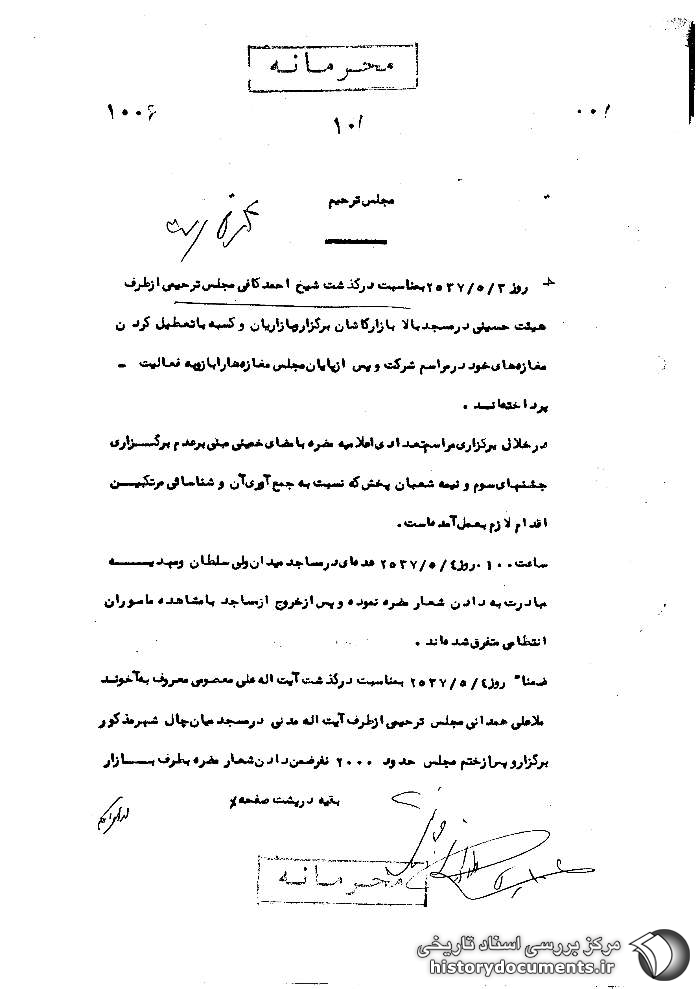 محرمانه
۱۰۰۶
۱۰۱
۰۰۱
مجلس ترحیم
روز ۲۵۳۷/۵/۳ بمناسبت درگذشت شیخ احمد کافی مجلس ترحیمی از طرف
هیئت حسینی در مسجد بالا بازار کاشان برگزار و بازاریان و کسبه با تعطیل کردن
مغازه‌های خود در مراسم شرکت و پس از پایان مجلس مغازه‌ها را باز و به فعالیت -
پرداخته‌اند .
در خلال برگزاری مراسم تعدادی اعلامیه مضره با مضای خمینی مبنی بر عدم برگزاری
جشنهای سوم و نیمه شعبان پخش که نسبت به جمع آوری آن و شناسائی مرتکبین
اقدام لازم بعمل آمده است.
ساعت ۱۰۰۰ روز ۲۵۳۷/۵/۴ عده‌ای در مساجد میدان ولی سلطان و مهدیه
مبادرت به دادن شعار مضره نموده و پس از خروج از مساجد با مشاهده ماموران
انتظامی متفرق شده‌اند .
ضمنا" روز ۲۵۳۷/۵/۴ بمناسبت درگذشت آیت اله علی معصومی معروف به آخوند
ملا علی همدانی مجلس ترحیمی از طرف آیت اله مدنی در مسجد میان چال شهر مذکور
برگزار و پس از ختم مجلس حدود ۲۰۰۰ نفر ضمن دادن شعار مضره بطرف بازار
بقیه در پشت صفحه
محرمانه
مرکز بررسی اسناد تاریخی
historydocuments.ir